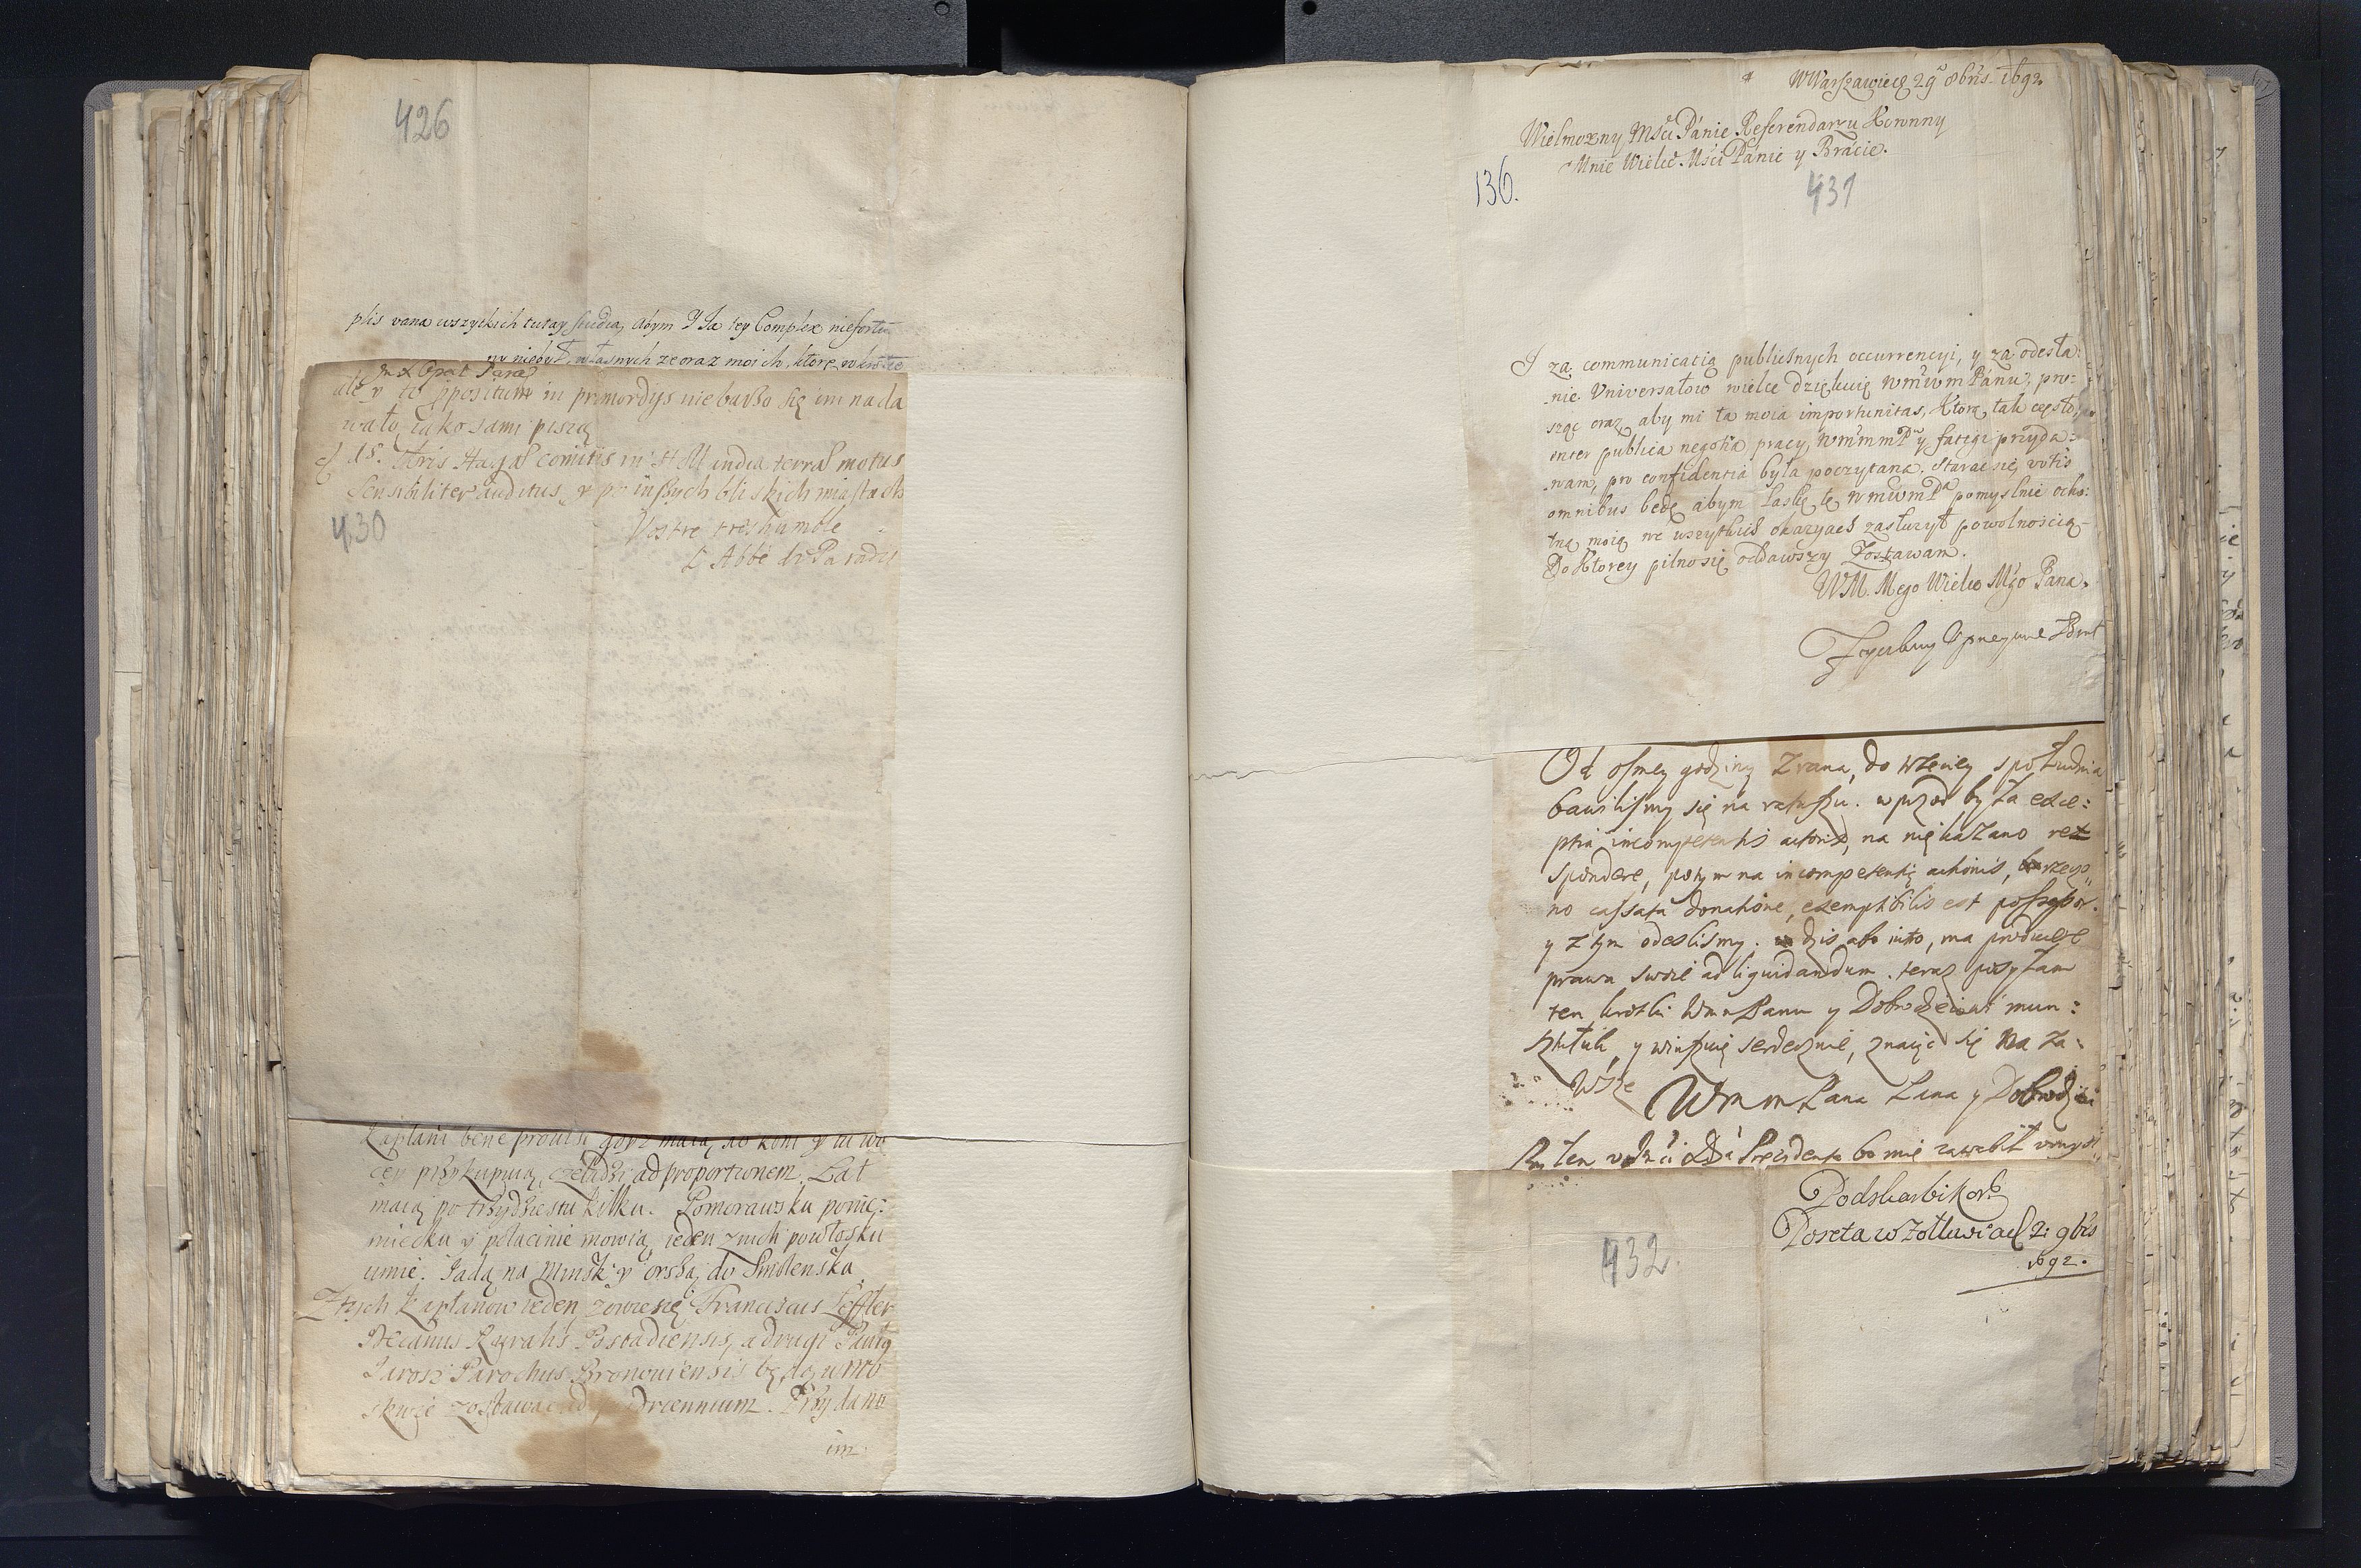 426
plis vana wszytkich tutay studia, abym I Ja tey Complex niefortun
ny nie był, własnych ze oraz moich, ktore wkrotce
ale y to oppositum in primordys niebarso się im nada
wało, iako sami piszą
18. 7bris Haga comitis in Hollandia terrae motus
sensibiliter auditus, y po inszych bliskich miastach
430
Vostre tres humble
L'Abbé de Parady
Kapłani bene provisi gdyż maią po koni y tu wo
cey przykupuią, czeladzi ad proportionem. Lat
maią po trzydziestu kilku. Pomorawsku ponie:
miecku y połacinie mowią, ieden znich powłosku
umie. Jadą na Minsk y Orszą do Smolenska
Ztych Kapłanow ieden zowie się Franciscus Leffler
Decanus Ruralis, a drugi Paulus
Jarosz Parochus Bronoviensis będą w Mo
skwie zostawać ad Triennium. Przydano
im
W Warszawie d 29 8bris 1692
Wielmozny Mści Pánie Referendarzu Koronny
Mnie Wielce Mści Pánie y Brácie.
136.
431
I za communicatią publicznych occurrencyi, y za odesła:
nie Vniversałow wielce dziękuię WmMm Pánu, pro:
sząc oraz, aby mi ta moia importunitas, Ktorą tak często,
inter publica negotia pracy WmMmPu y fatigi przyda:
wam, pro confidentia była poczytana. Starać się votis
omnibus będę abym łaskę tę WmMmPa pomyslnie ocho:
tną moią we wszytkich okazyach zasłuzył powolnoscią
Do Ktorey pilno się oddawszy Zostawam.
WM. Mego Wielce Mgo Pana.
Zyczliwy Vprzeymie Brat
Od osmey godziny Zrana, do trzeciey społudnia
bawilismy się na ratuszu. wprzod była exce:
ptia incompetentis actoris, na nię kazano re
spondere, potym na incompetentię actionis, rzego
no cassata donatione, exemptibilis est possessor.
y z tym odeslismy. dzis abo iutro, ma producere
prawa swoie ad liquidandum. teraz posyłam
ten krotki Wmm Panu y Dobrodzieiowi mun:
sztuk, y winszuię serdecznie, znaiąc się na za:
wsze Wmm Pana Pana y Dobrodzieia
Podskarbi Kor.
Poseta w Zołkwi ad 2. 9bris
1692.
432.